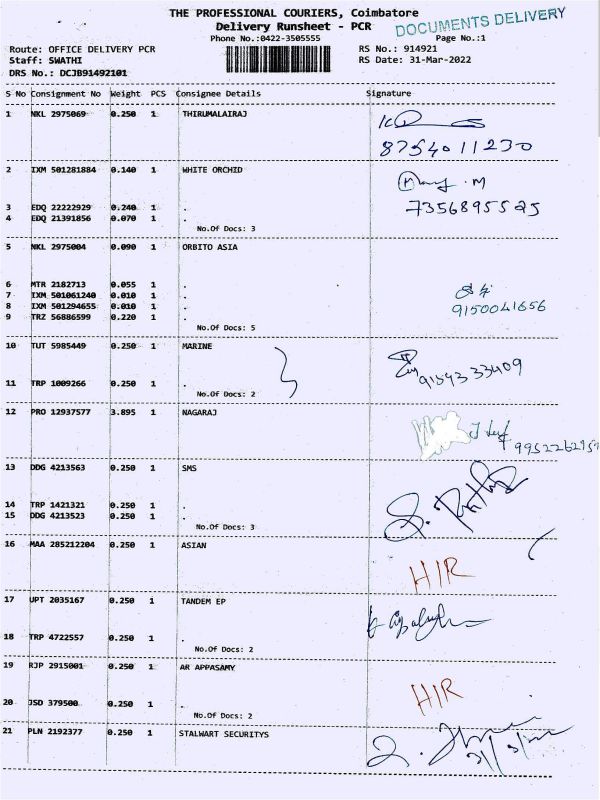 THE PROFESSIONAL COURIERS, Coimbatore
Delivery Runsheet - PCR
DOCUMENTS DELIVERY
Phone No.:0422-3505555
Page No.:1
Route: OFFICE DELIVERY PCR
RS No.: 914921
Staff: SWATHI
RS Date: 31-Mar-2022
DRS No.: DCJB91492101
S No Consignment No Weight PCS Consignee Details Signature
1 NKL 2975069 0.250 1 THIRUMALAIRAJ
8754011230
2 IXM 501281884 0.140 1 WHITE ORCHID
M
7356895525
3 EDQ 22222929 0.240 1 .
4 EDQ 21391856 0.070 1 .
No.Of Docs: 3
5 NKL 2975004 0.090 1 ORBITO ASIA
6 MTR 2182713 0.055 1 .
7 IXM 501061240 0.010 1 .
8 IXM 501294655 0.010 1 .
9150041656
9 TRZ 56886599 0.220 1 .
No.Of Docs: 5
10 TUT 5985449 0.250 1 MARINE
9159333409
11 TRP 1009266 0.250 1 .
No.Of Docs: 2
12 PRO 12937577 3.895 1 NAGARAJ
13 DDG 4213563 0.250 1 SMS
14 TRP 1421321 0.250 1 .
15 DDG 4213523 0.250 1 .
No.Of Docs: 3
16 MAA 285212204 0.250 1 ASIAN
HIR
17 UPT 2035167 0.250 1 TANDEM EP
18 TRP 4722557 0.250 1 .
No.Of Docs: 2
19 RJP 2915001 0.250 1 AR APPASAMY
HIR
20 JSD 379500 0.250 1 .
No.Of Docs: 2
21 PLN 2192377 0.250 1 STALWART SECURITYS